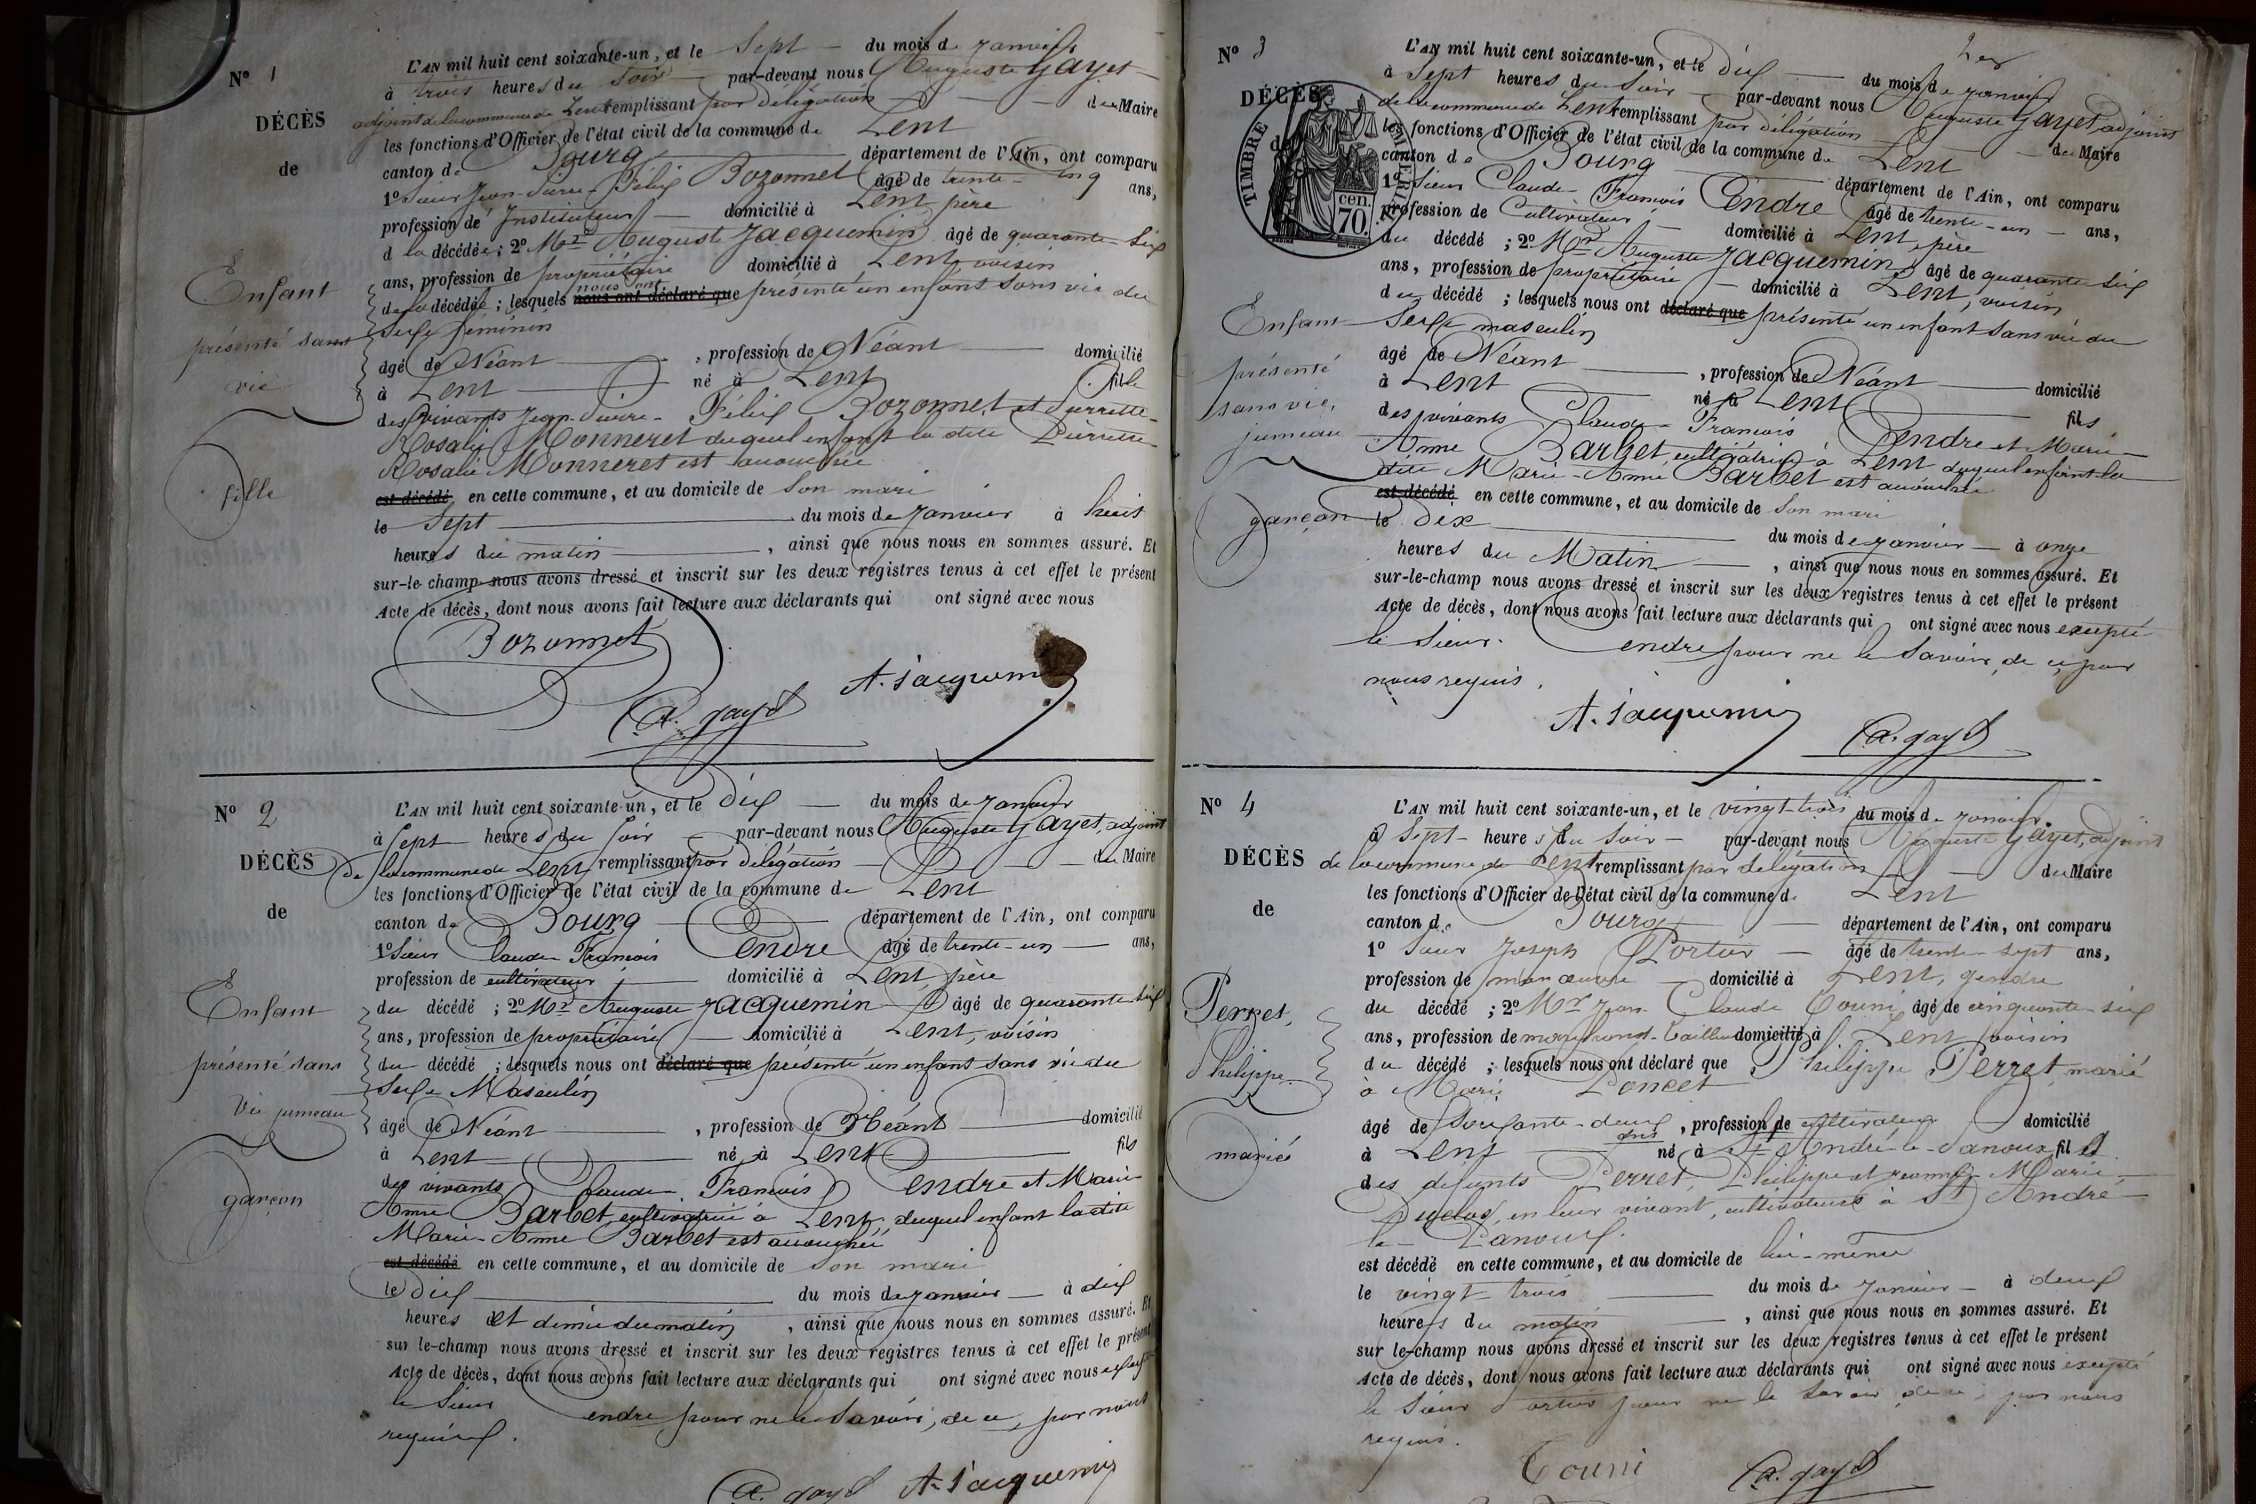 N° 1
DÉCÈS
de
Enfant
présenté sans
vie
fille
L'AN mil huit cent soixante-un, et le Sept du mois de Janvier
à trois heures du soir par-devant nous Auguste Gayet
adjoint de la commune de Lent remplissant par délégation du Maire
les fonctions d'Officier de l'état civil de la commune de Lent
canton de Bourg département de l'Ain, ont comparu
1° Sieur Jean-Pierre-Félix Bozonnet âgé de trente-cinq ans,
profession de Instituteur domicilié à Lent père
d la décédée ; 2° Mr Auguste Jacquemin âgé de quarante-six
ans, profession de propriétaire domicilié à Lent, voisin
de la décédée ; lesquels nous ont déclaré que nous ont présenté un enfant sans vie du
sexe féminin
âgé de Néant , profession de Néant domicilié
à Lent né à Lent fille
des vivants Jean-Pierre-Félix Bozonnet et Pierrette-
Rosalie Monneret duquel enfant la dite Pierrette
Rosalie Monneret est accouchée
est décédé en cette commune, et au domicile de son mari
le Sept du mois de Janvier à huit
heures du matin , ainsi que nous nous en sommes assuré. Et
sur-le-champ nous avons dressé et inscrit sur les deux registres tenus à cet effet le présent
Acte de décès, dont nous avons fait lecture aux déclarants qui ont signé avec nous
Bozonnet
A. Jacquemin
A. gayet
N° 2
DÉCÈS
de
Enfant
présenté sans
vie jumeau
garçon
L'AN mil huit cent soixante-un, et le dix du mois de Janvier
à Sept heures du soir par-devant nous Auguste Gayet, adjoint
de la commune de Lent remplissant par délégation du Maire
les fonctions d'Officier de l'état civil de la commune de Lent
canton de Bourg département de l'Ain, ont comparu
1° Sieur Claude François Cendre âgé de trente-un ans,
profession de cultivateur domicilié à Lent père
du décédé ; 2° Mr Auguste Jacquemin âgé de quarante six
ans, profession de propriétaire domicilié à Lent, voisin
du décédé ; lesquels nous ont déclaré que présenté un enfant sans vie du
Sexe Masculin
âgé de Néant , profession de Néant domicilié
à Lent né à Lent fils
des vivants Claude François Cendre et Marie
Anne Barbet, cultivatrice à Lent, duquel enfant la dite
Marie-Anne Barbet est accouchée
est décédé en cette commune, et au domicile de son mari
le Dix du mois de Janvier à dix
heures et demie du matin , ainsi que nous nous en sommes assuré. Et
sur le-champ nous avons dressé et inscrit sur les deux registres tenus à cet effet le présent
Acte de décès, dont nous avons fait lecture aux déclarants qui ont signé avec nous excepté
le Sieur Cendre pour ne le savoir, de ce, par nous
requis.
A. gayet A. Jacquemin
N° 3
DÉCÈS
de
TIMBRE
cen.
70.
Enfant
présenté
sans vie,
jumeau
garçon
L'AN mil huit cent soixante-un, et le dix du mois de Janvier
à Sept heures du Soir par-devant nous Auguste Gayet, adjoint
de la commune de Lent remplissant par délégation du Maire
les fonctions d'Officier de l'état civil de la commune de Lent
canton de Bourg département de l'Ain, ont comparu
1° Sieur Claude François Cendre âgé de trente-un ans,
profession de Cultivateur domicilié à Lent, père
du décédé ; 2° Mr Auguste Jacquemin, âgé de quarante six
ans, profession de propriétaire domicilié à Lent, voisin
du décédé ; lesquels nous ont déclaré que présenté un enfant sans vie du
Sexe masculin
âgé de Néant , profession de Néant domicilié
à Lent né à Lent fils
des vivants Claude-François Cendre et Marie-
Anne Barbet, cultivatrice à Lent duquel enfant la
dite Marie-Anne Barbet est accouchée
est décédé en cette commune, et au domicile de son mari
le dix du mois de Janvier à onze
heures du Matin , ainsi que nous nous en sommes assuré. Et
sur-le-champ nous avons dressé et inscrit sur les deux registres tenus à cet effet le présent
Acte de décès, dont nous avons fait lecture aux déclarants qui ont signé avec nous excepté
le Sieur Cendre pour ne le savoir, de ce, par
nous requis.
A. Jacquemin
A. gayet
N° 4
DÉCÈS
de
Perret,
Philippe
marié
L'AN mil huit cent soixante-un, et le vingt-trois du mois de Janvier
à Sept heures du Soir par-devant nous Auguste Gayet, adjoint
de la commune de Lent remplissant par délégation du Maire
les fonctions d'Officier de l'état civil de la commune de Lent
canton de Bourg département de l'Ain, ont comparu
1° Sieur Joseph Portier âgé de trente-sept ans,
profession de manœuvre domicilié à Lent, gendre
du décédé ; 2° Mr Jean Claude Touni âgé de cinquante-six
ans, profession de marchand-tailleur domicilié à Lent voisin
du décédé ; lesquels nous ont déclaré que Philippe Perret, marié
à Marie Poncet
âgé de Soixante-deux ans , profession de cultivateur domicilié
à Lent né à St André-le-Panoux fils
des défunts Perret, Philippe et Jeanne-Marie
Duclos, en leur vivant, cultivateurs à St André
le-Panoux.
est décédé en cette commune, et au domicile de lui-même
le vingt-trois du mois de Janvier à deux
heures du matin , ainsi que nous nous en sommes assuré. Et
sur le-champ nous avons dressé et inscrit sur les deux registres tenus à cet effet le présent
Acte de décès, dont nous avons fait lecture aux déclarants qui ont signé avec nous excepté
le Sieur Portier pour ne le savoir, de ce, par nous
requis.
Touni
A. gayet